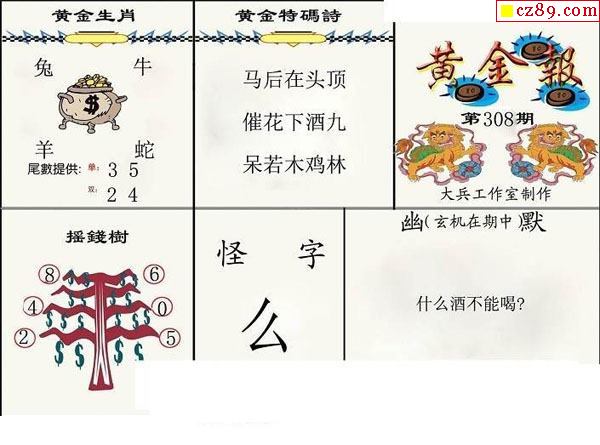 cz89.com
黄金生肖
兔 牛
$
羊 蛇
尾數提供: 单: 3 5
双: 2 4
黄金特碼詩
马后在头顶
催花下酒九
呆若木鸡林
黄金報
第308期
大兵工作室制作
摇錢樹
8 6
4 0
2 5
$ $ $ $ $ $
怪 字
么
幽(玄机在期中)默
什么酒不能喝?